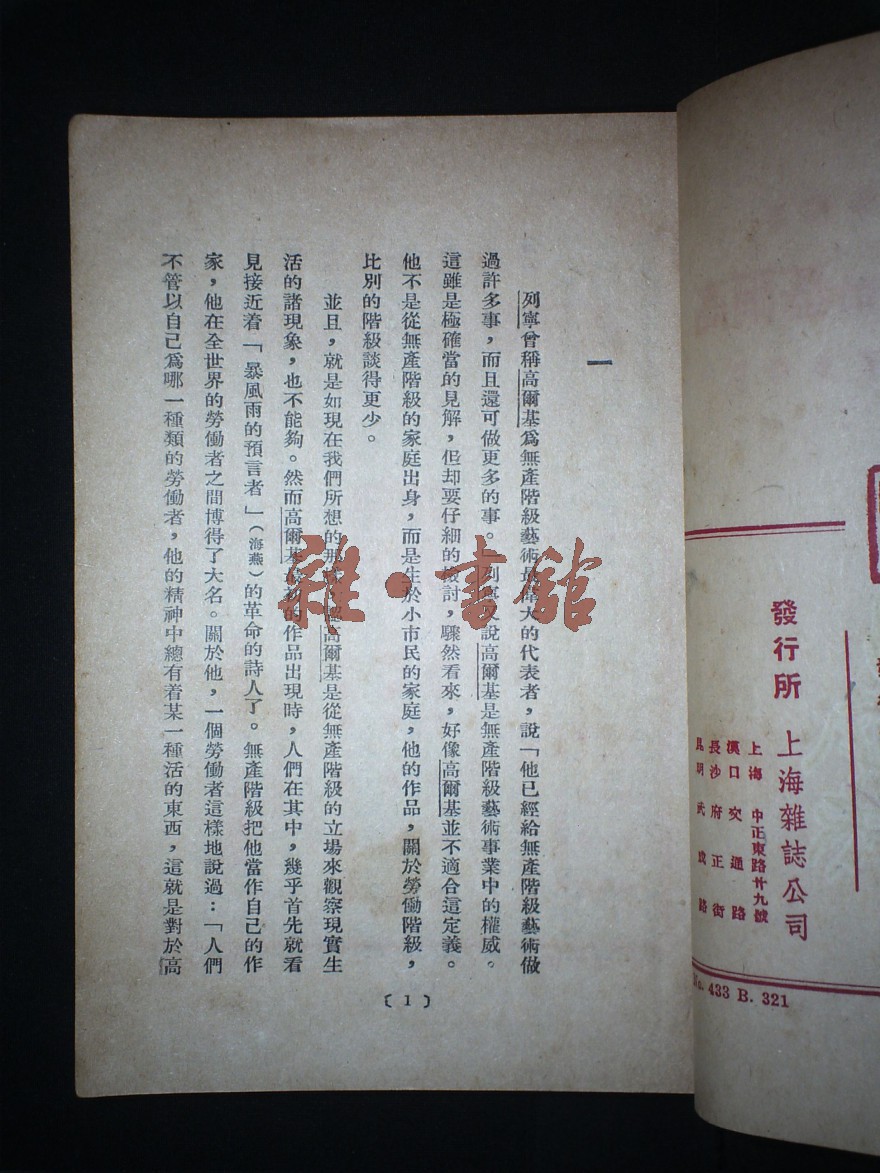 發行所 上海雜誌公司
上海 中正東路廿九號
漢口交通路
長沙府正街
昆明武成路
No. 433 B. 321
一
列寧曾稱高爾基爲無產階級藝術最偉大的代表者，說「他已經給無產階級藝術做
過許多事，而且還可做更多的事。」列寧又說高爾基是無產階級藝術事業中的權威。
這雖是極確當的見解，但却要仔細的檢討，驟然看來，好像高爾基並不適合這定義。
他不是從無產階級的家庭出身，而是生於小市民的家庭，他的作品，關於勞働階級，
比別的階級談得更少。
並且，就是如現在我們所想的那 高爾基是從無產階級的立場來觀察現實生
活的諸現象，也不能夠。然而高爾基最初的作品出現時，人們在其中，幾乎首先就看
見接近着「暴風雨的預言者」（海燕）的革命的詩人了。無產階級把他當作自己的作
家，他在全世界的勞働者之間博得了大名。關於他，一個勞働者這樣地說過：「人們
不管以自己爲哪一種類的勞働者，他的精神中總有着某一種活的東西，這就是對於高
〔1〕
雜·書館